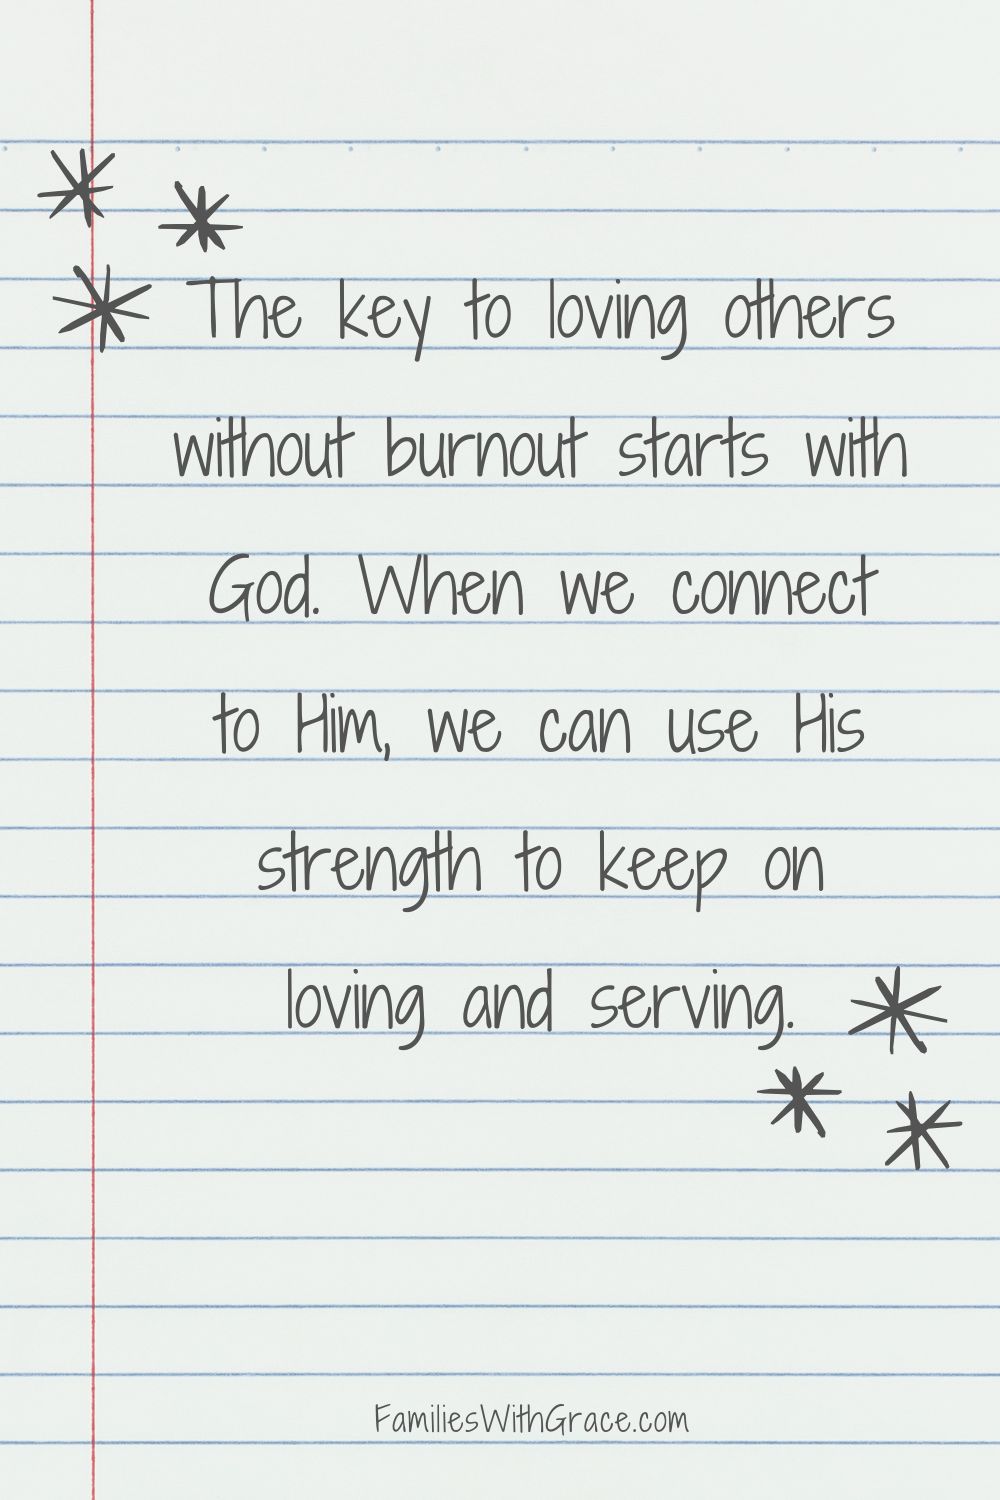 The key to loving others
without burnout starts with
God. When we connect
to Him, we can use His
strength to keep on
loving and serving.
FamiliesWithGrace.com